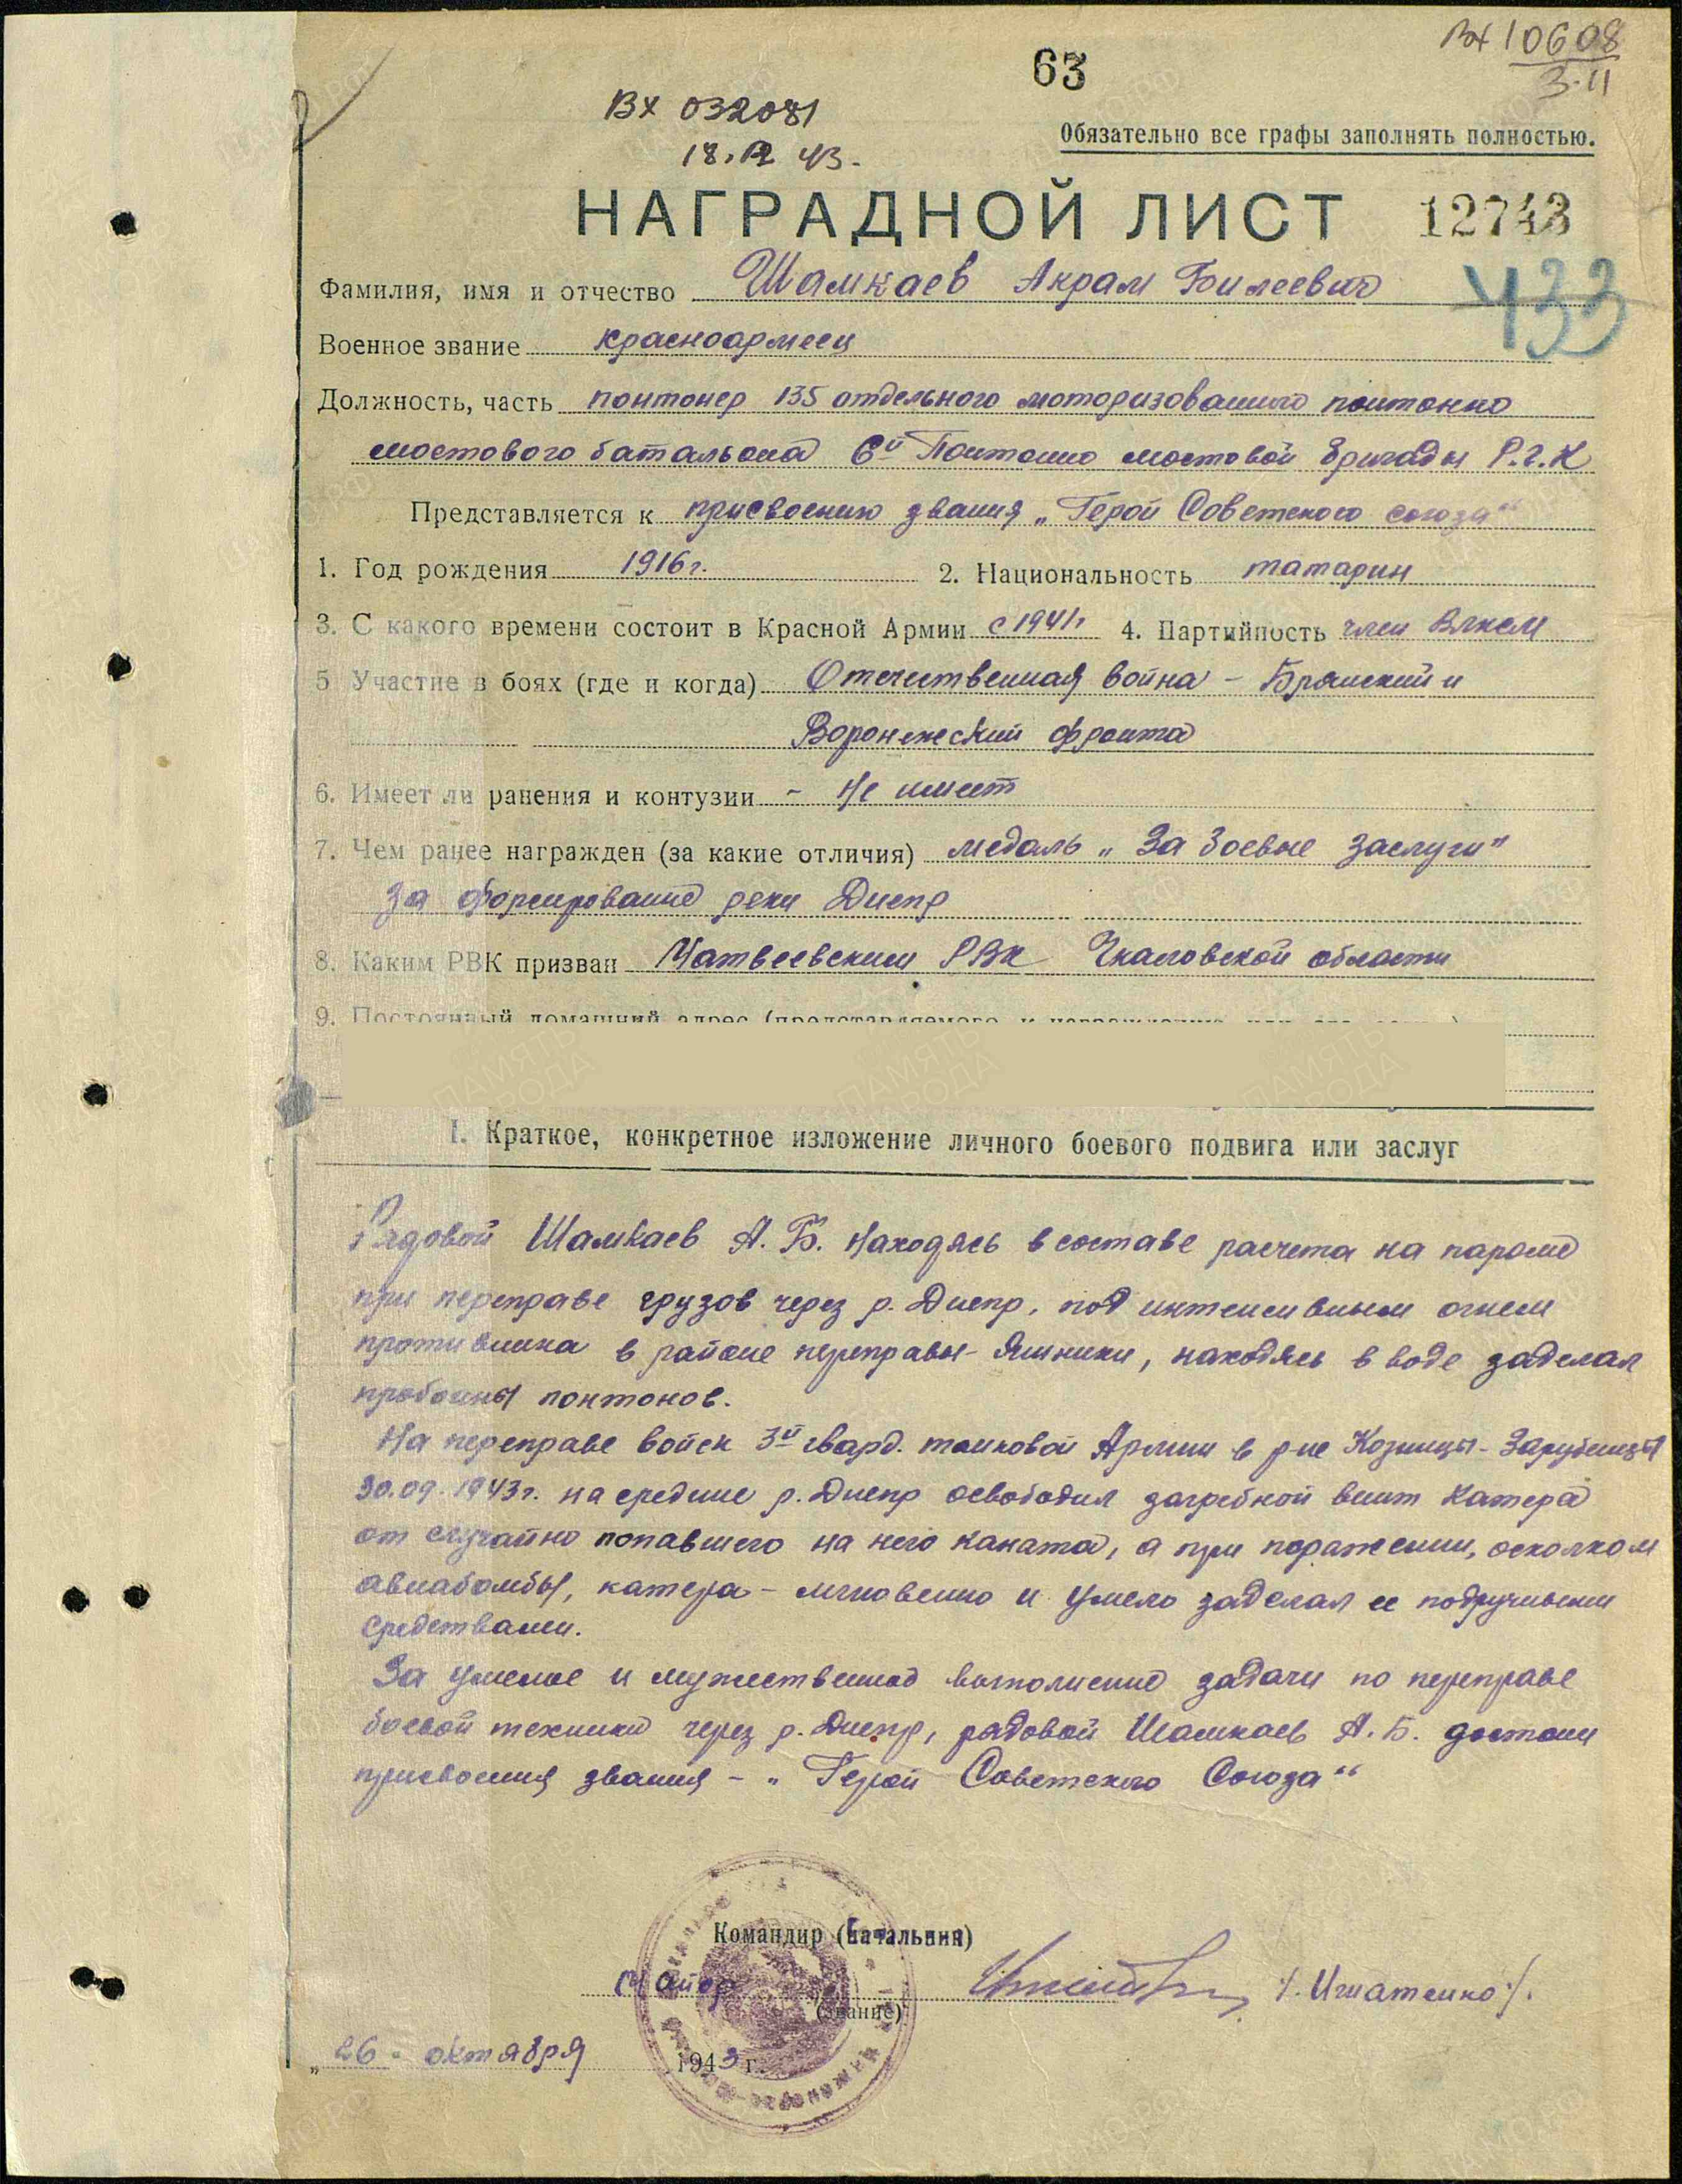 Вх 10608
3-11
63
Вх 032081
18.12 43.
Обязательно все графы заполнять полностью.
НАГРАДНОЙ ЛИСТ 12743
433
Фамилия, имя и отчество Шамкаев Акрам Билеевич
Военное звание красноармеец
Должность, часть понтонер 135 отдельного моторизованного понтонно
мостового батальона 6й Понтонно мостовой бригады Р.Г.К
Представляется к присвоению звания „Герой Советского союза"
1. Год рождения 1916г. 2. Национальность татарин
3. С какого времени состоит в Красной Армии с 1941г 4. Партийность член Влксм
5 Участие в боях (где и когда) Отечественная война - Брянский и
Воронежский фронта
6. Имеет ли ранения и контузии - Не имеет
7. Чем ранее награжден (за какие отличия) медаль „За боевые заслуги"
За форсирование реки Днепр
8. Каким РВК призван Матвеевским РВК Чкаловской области
9. Постоянный домашний адрес (представляемого к награждению
I. Краткое, конкретное изложение личного боевого подвига или заслуг
Рядовой Шамкаев А. Б. Находясь в составе расчета на пароме
при переправе грузов через р. Днепр, под интенсивным огнем
противника в районе переправы - Яшники, находясь в воде заделал
пробоины понтонов.
На переправе войск 3й гвард. танковой Армии в р-не Козинцы - Зарубенцы
30.09.1943г. на средине р. Днепр освободил загребной винт катера
от случайно попавшего на него каната, а при поражении, осколком
авиабомбы, катера - мгновенно и умело заделал ее подручными
средствами.
За умелое и мужественное выполнение задачи по переправе
боевой техники через р. Днепр, рядовой Шамкаев А. Б. достоин
присвоения звания - „Герой Советского Союза"
Командир (Батальона)
Майор /. Игнатенко /.
(звание)
„26 - октября 1943 г.